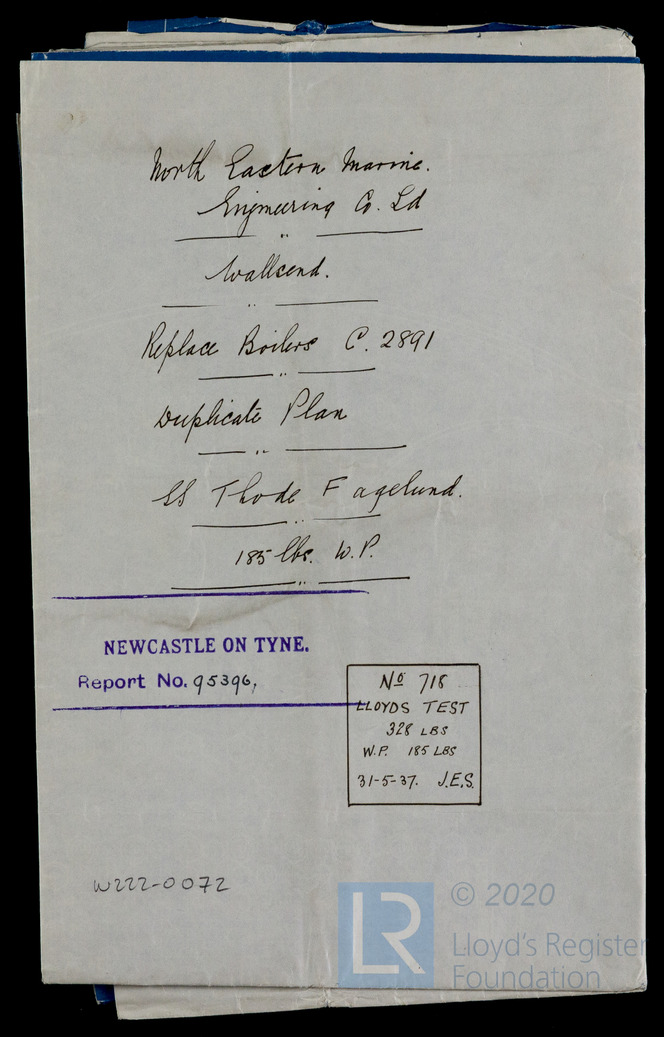 North Eastern Marine.
Engineering Co. Ld
Wallsend.
Replace Boilers C. 2891
Duplicate Plan
SS Thode Fagelund.
185 lbs. W.P.
NEWCASTLE ON TYNE.
Report No. 95396,
No 718
LLOYDS TEST
328 LBS
W.P. 185 LBS
31-5-37. J.E.S.
W222-0072
LR
© 2020
Lloyd's Register
Foundation